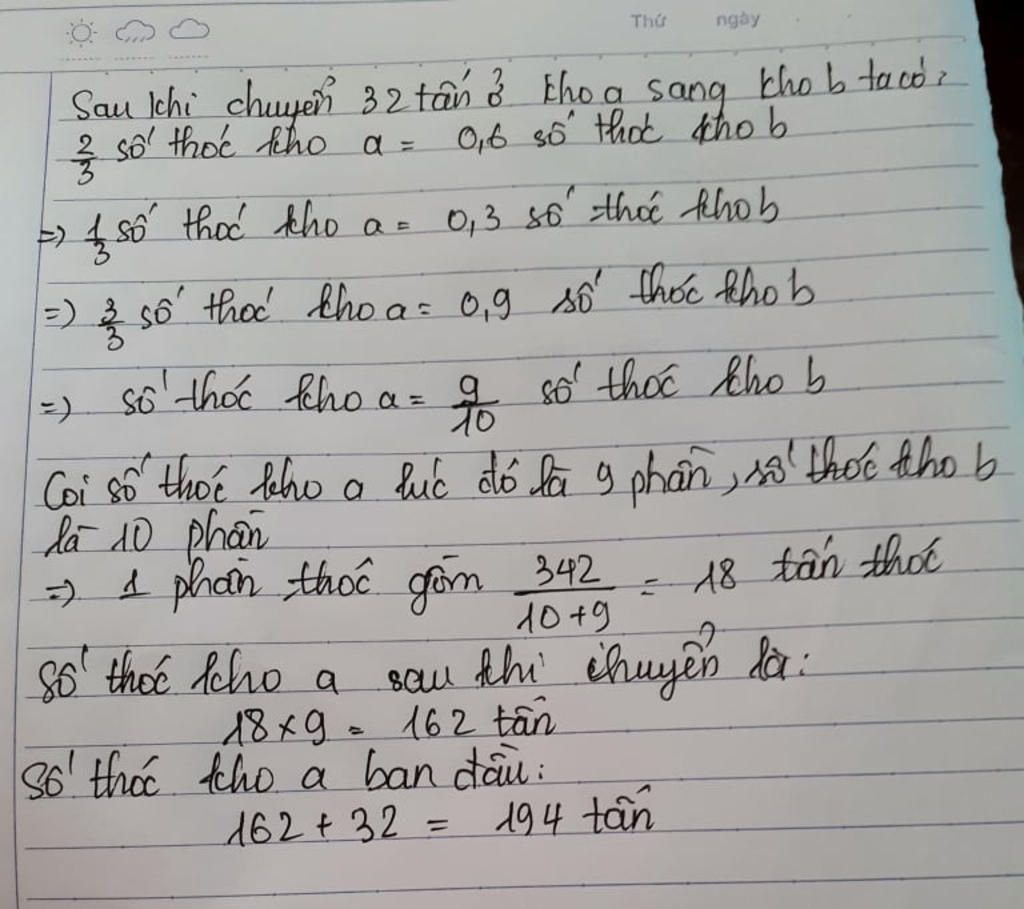 Thứ ngày
Sau khi chuyển 32 tấn ở kho a sang kho b ta có:
2/3 số thóc kho a = 0,6 số thóc kho b
=> 1/3 số thóc kho a = 0,3 số thóc kho b
=> 3/3 số thóc kho a = 0,9 số thóc kho b
=> số thóc kho a = 9/10 số thóc kho b
Coi số thóc kho a lúc đó là 9 phần, số thóc kho b
là 10 phần
=> 1 phần thóc gồm 342/10+9 = 18 tấn thóc
Số thóc kho a sau khi chuyển là:
18 x 9 = 162 tấn
Số thóc kho a ban đầu:
162 + 32 = 194 tấn